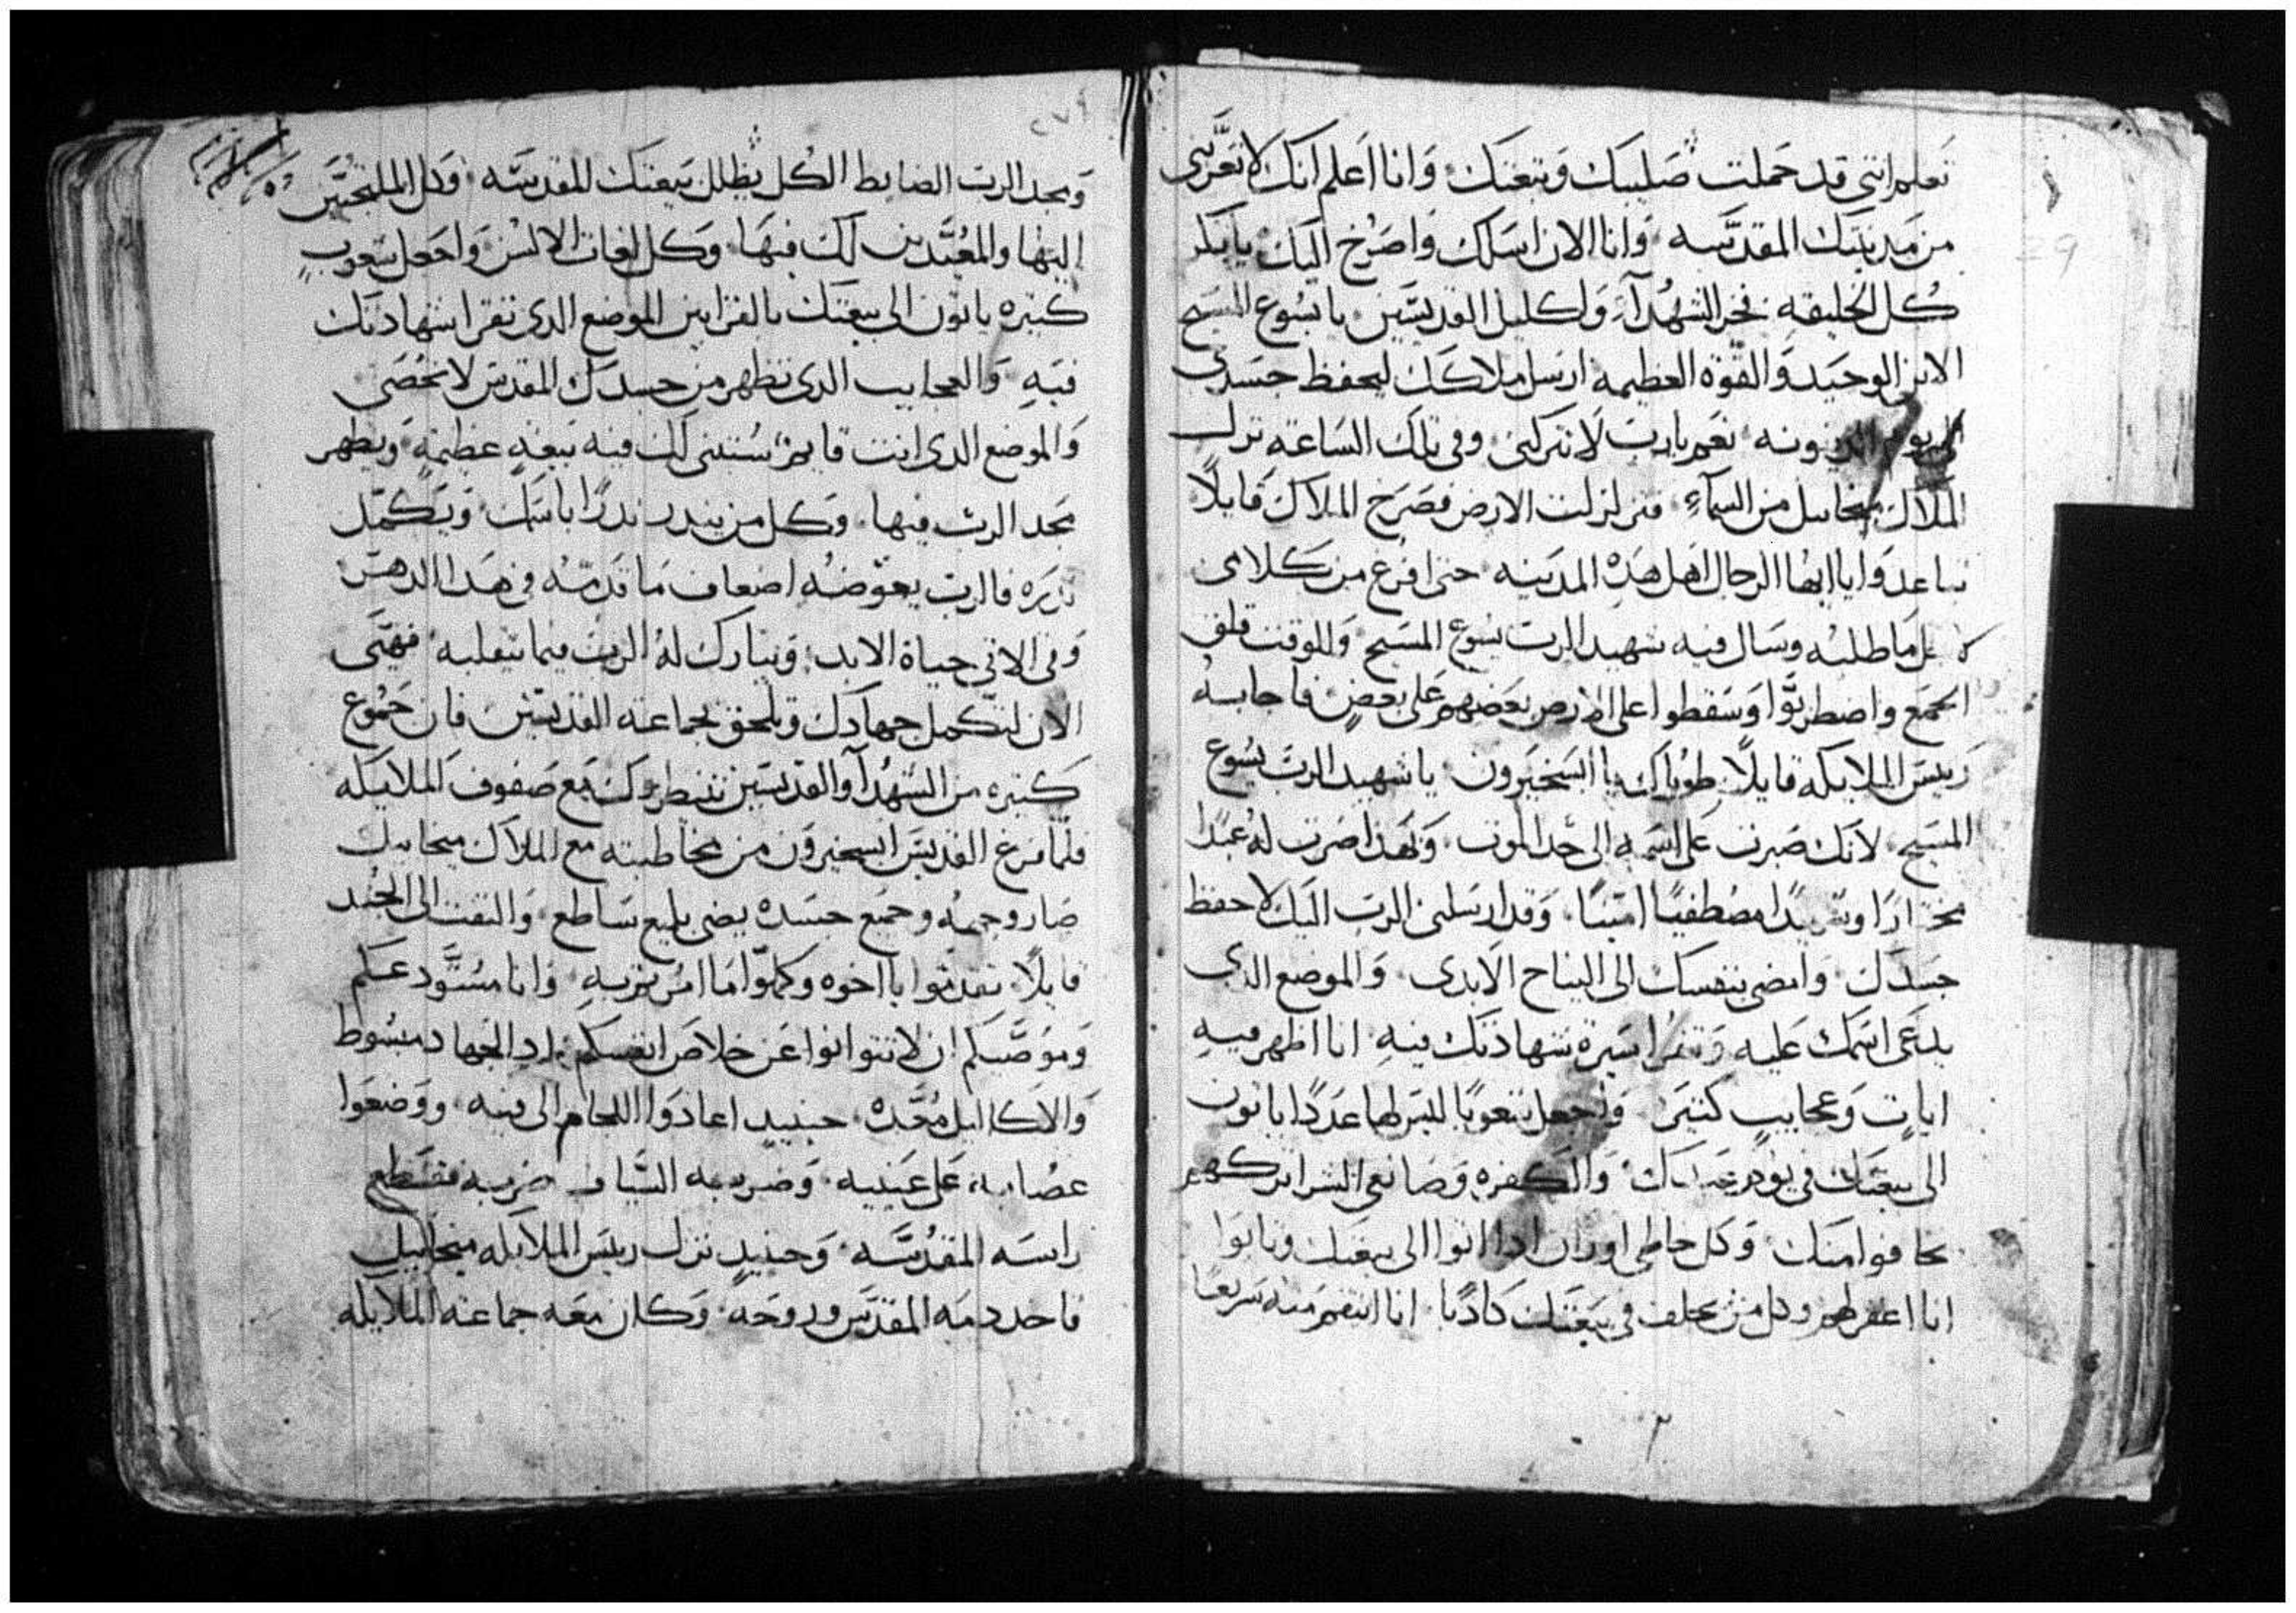 تعلم انني قد حملت صليبك وتبعتك وانا اعلم انك لا تعزيني
من مدينتك المقدسه وانا الان اسلك واصرخ اليك يا بكر
كل الخليقه فخر الشهدآء واكليل القديسين يا يسوع المسيح
الابن الوحيد والقوة العظيمه ارسل ملاكك ليحفظ جسدي
نعم يارب لا تتركني وفي تلك الساعه نزل
الملاك ميخاييل من السمآء فتزلزلت الارض فصرخ الملاك قايلًا
تباعدوا يا ايها الرجال اهل هذه المدينه حتى افرغ من كلامي
ما طلبه وسال فيه شهيد الرب يسوع المسيح وللوقت قلق
الجمع واضطربوا وسقطوا على الارض بعضهم على بعض فاجابه
رييس الملايكه قايلًا طوباك يا ابسخيرون يا شهيد الرب يسوع
المسيح لانك صبرت على اسمه الى حد الموت ولهذا صرت له عبدًا
مختارًا مصطفيًا امينًا وقد ارسلني الرب اليك لاحفظ
جسدك وامضي بنفسك الى النياح الابدي والموضع الدي
يدعى اسمك عليه وتقرا سيرة شهادتك فيه انا اظهر فيه
ايات وعجايب كثيره واجعل شعوبًا ليس لها عددًا ياتون
الى بيعتك في يوم عيدك والكفره وصانعي الشر اتركهم
يخافوا منك وكل خاطي اوزان ادا اتوا الى بيعتك وتابوا
انا اغفر لهم وكل من يحلف في بيعتك كادبًا انا انتقم منه سريعًا
٢٧٩
ومجد الرب الضابط الكل يظلل بيعتك المقدسه وكل الملتجيين
اليها والمعيدين لك فيها وكل لغات الالسن واجعل شعوب
كثيره ياتون الى بيعتك بالقرابين الموضع الدي تقرا شهادتك
فيه والعجايب الدي تظهر من جسدك المقدس لا تحصى
والموضع الدي انت قايم ستبنى لك فيه بيعه عظيمه ويظهر
مجد الرب فيها وكل من يندر ندرًا باسمك ويكمل
ندره فالرب يعوضه اضعاف ما قدمه في هدا الدهر
وفي الاتي حياة الابد ويبارك له الرب فيما
الان لتكمل جهادك وتلحق بجماعة القديسين فان جموع
كثيره من الشهدآ والقديسين تنتظروك مع صفوف الملايكه
فلما فرغ القديس ابسخيرون من مخاطبته مع الملاك ميخاييل
صار وجهه وجميع جسده يضي بلمع ساطع والتفت الى الجند
قايلًا تقدموا يا اخوه وكملوا ما امرتم به وانا مستودعكم
وموصيكم ان لا تتوانوا عن خلاص انفسكم الجهاد مبسوط
والاكاليل معده حينيد اعادوا اللجام الى فيه ووضعوا
عصابه على عينيه وضربه السياف ضربه فقطع
راسه المقدسه وحينيد نزل رييس الملايكه ميخاييل
فاخد دمه المقدس وروحه وكان معه جماعة الملايكه